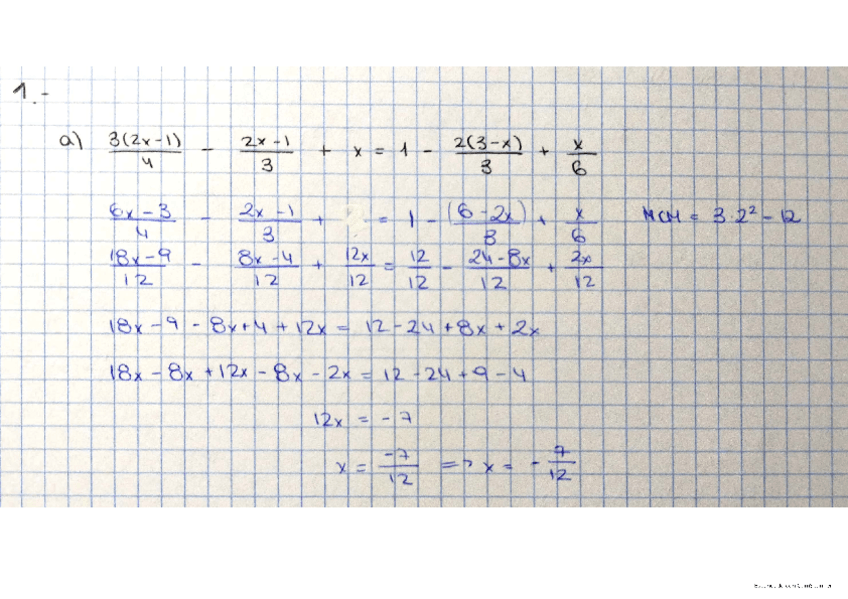 1.-
a) 3(2x-1)/4 - 2x-1/3 + x = 1 - 2(3-x)/3 + x/6
6x-3/4 - 2x-1/3 + = 1 - (6-2x)/3 + x/6 MCM = 3·2² - 12
18x-9/12 - 8x-4/12 + 12x/12 = 12/12 - 24-8x/12 + 2x/12
18x - 9 - 8x + 4 + 12x = 12 - 24 + 8x + 2x
18x - 8x + 12x - 8x - 2x = 12 - 24 + 9 - 4
12x = -7
x = -7/12 => x = - 7/12